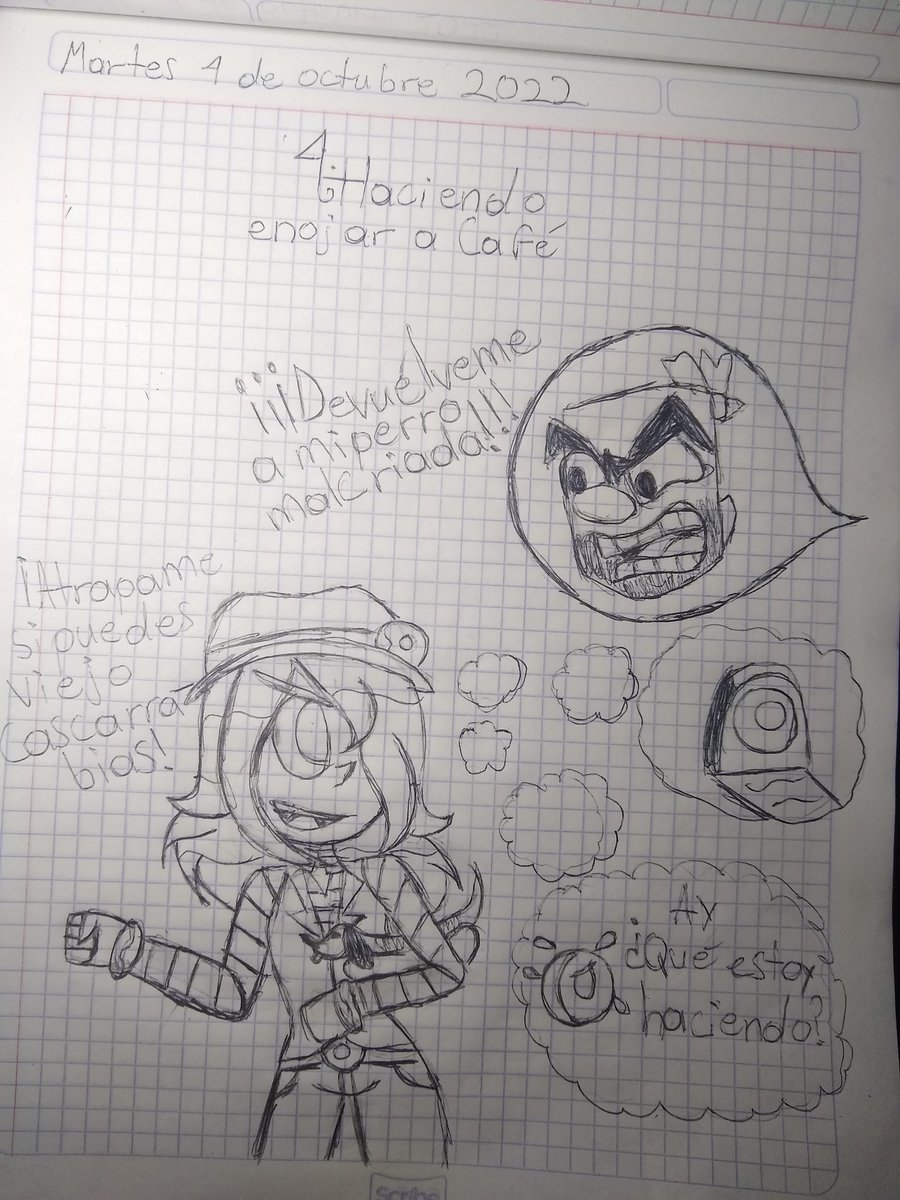 Martes 4 de octubre 2022
4
¡Haciendo
enojar a Café
¡¡¡Devuelveme
a mi perro!!!
malcriada!!
¡Atrapame
si puedes
viejo
Cascarra
bias!
Ay
¿Qué estoy
haciendo?
Scribe